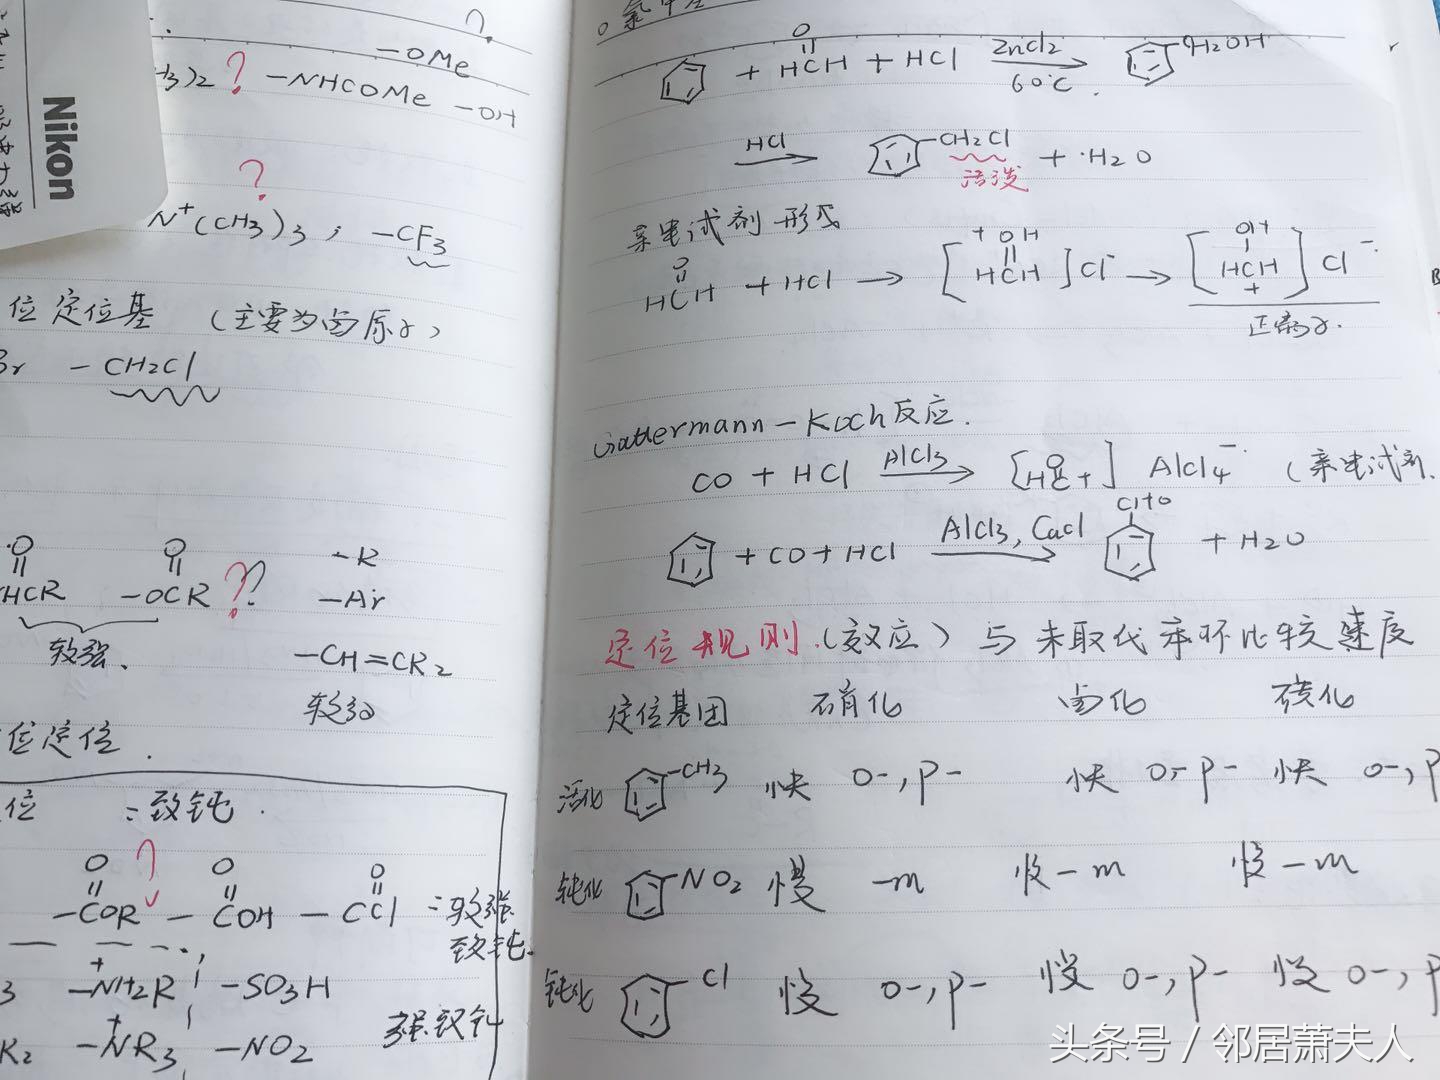 Nikon
?
-OMe
H3)2 ? -NHCOMe -OH
?
N+(CH3)3, -CF3
位定位基 (主要为卤原子)
Br -CH2Cl
O O -R
HCR -OCR ?? -Ar
较强、 -CH=CR2
较弱
位定位.
位 =致钝.
O ? O O
-COR -COH -CCl =较强
致钝.
3 -N+H2R -SO3H
R2 -N+R3 -NO2 强致钝
氯甲基
+ HCH + HCl ZnCl2 60℃. CH2OH
HCl CH2Cl + H2O
活泼
亲电试剂形成
HCH + HCl → [+OH HCH]Cl- → [OH HCH +]Cl-
正离子.
Gattermann-Koch反应.
CO + HCl AlCl3 → [HC+ O] AlCl4- (亲电试剂.
+ CO + HCl AlCl3, CuCl CHO + H2O
定位规则.(效应) 与未取代苯环比较速度
定位基团 硝化 卤化 磺化
活化 -CH3 快 o-,p- 快 o-p- 快 o-,p
钝化 -NO2 慢 -m 慢-m 慢-m
钝化 -Cl 慢 o-,p- 慢 o-,p- 慢 o-,p
头条号/邻居萧夫人